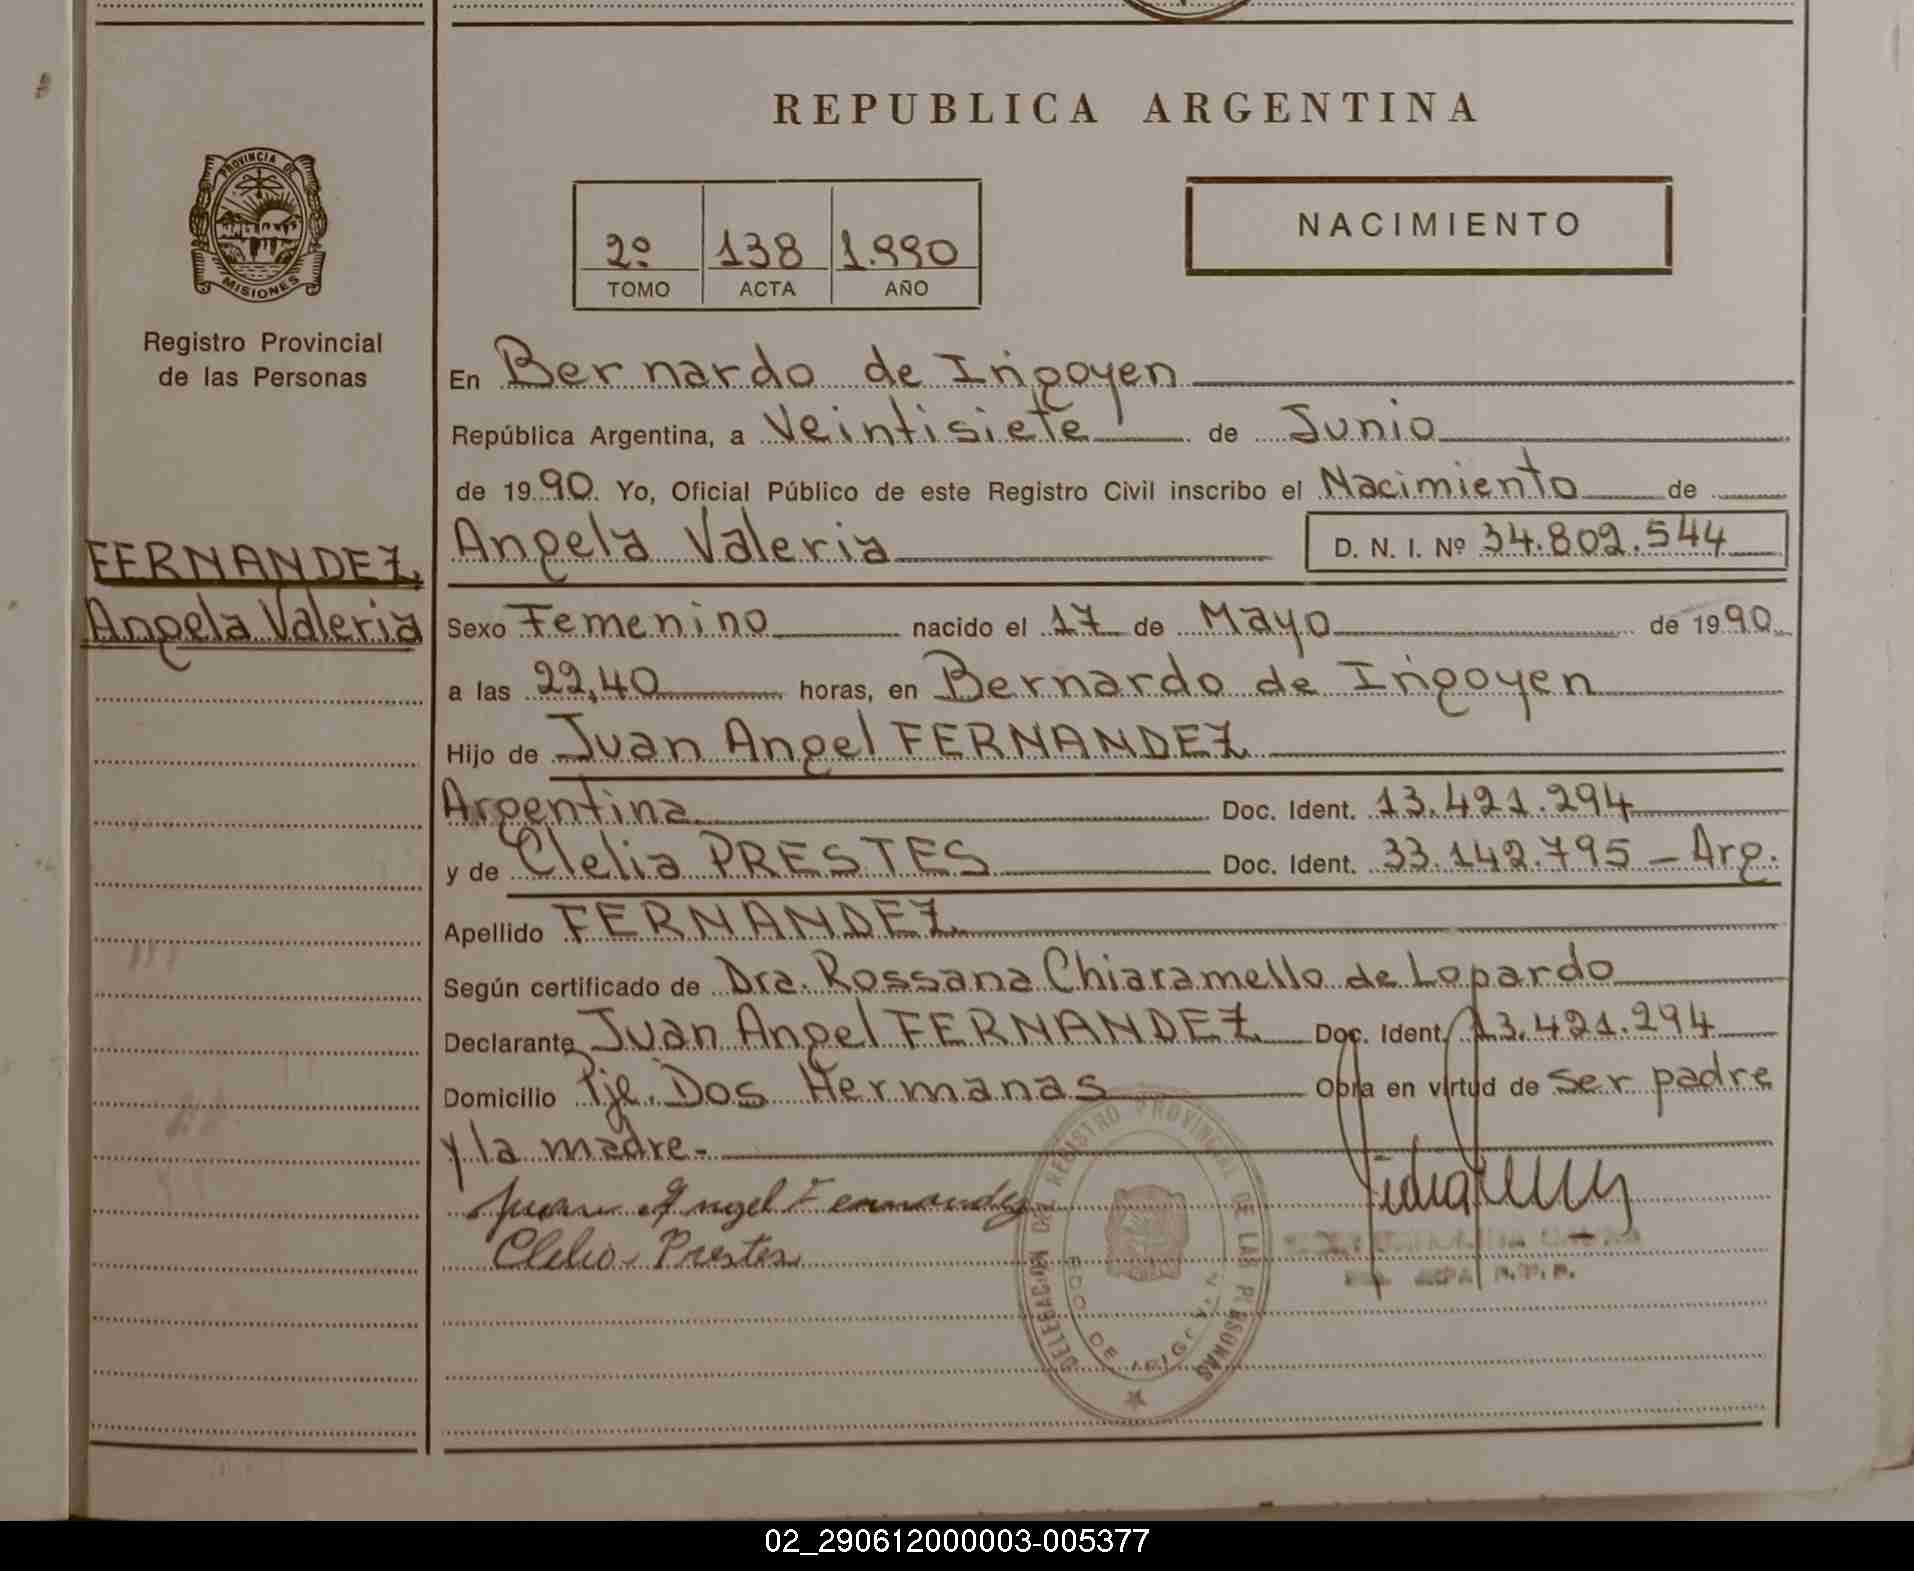 REPUBLICA ARGENTINA
PROVINCIA DE
MISIONES
Registro Provincial
de las Personas
2º 138 1.990
TOMO ACTA AÑO
NACIMIENTO
En Bernardo de Irigoyen
República Argentina, a Veintisiete de Junio
de 1990. Yo, Oficial Público de este Registro Civil inscribo el Nacimiento de
Angela Valeria D. N. I. Nº 34.802.544
FERNANDEZ
Angela Valeria
Sexo Femenino nacido el 17 de Mayo de 1990
a las 22,40 horas, en Bernardo de Irigoyen
Hijo de Juan Angel FERNANDEZ
Argentina Doc. Ident. 13.421.294
y de Clelia PRESTES Doc. Ident. 33.142.795 - Arg.
Apellido FERNANDEZ
Según certificado de Dra. Rossana Chiaramello de Lopardo
Declarante Juan Angel FERNANDEZ Doc. Ident. 13.421.294
Domicilio Pje. Dos Hermanas Obra en virtud de ser padre
y la madre.-
Juan Angel Fernandez
Clelia Prestes
DELEGACION DEL REGISTRO PROVINCIAL DE LAS PERSONAS
BDO. DE IRIGOYEN
02_290612000003-005377